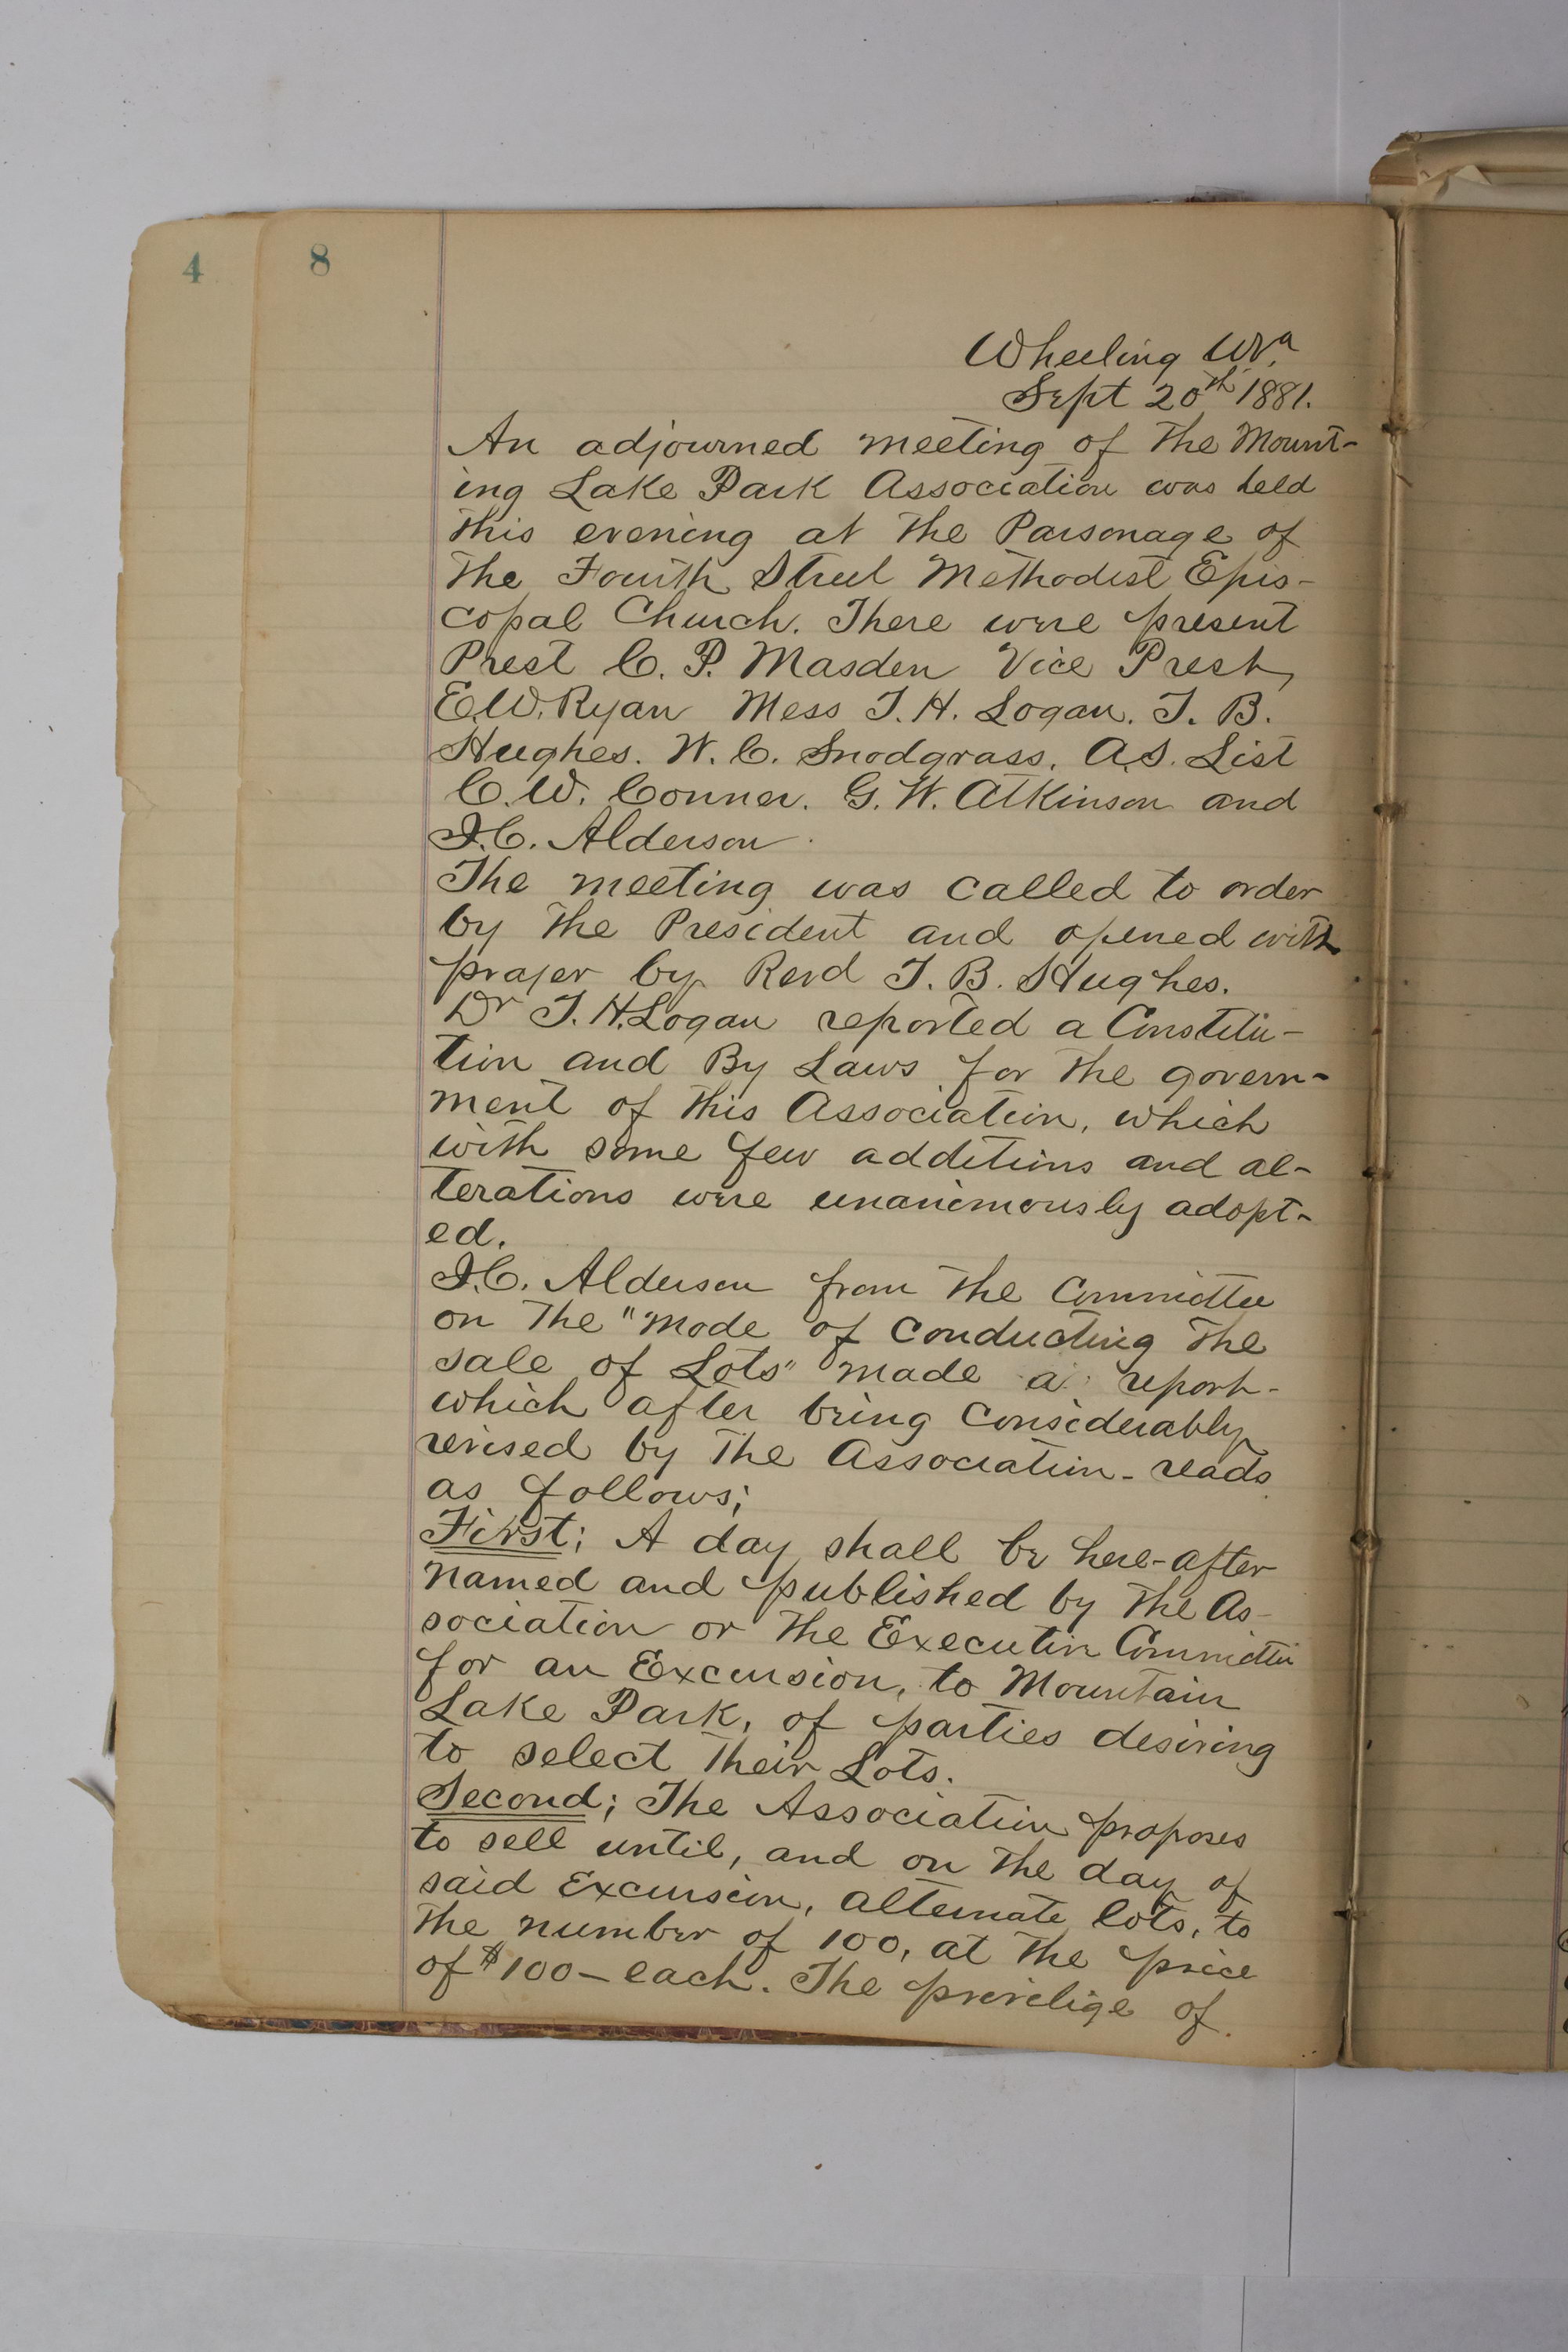 4
8
Wheeling W Va.
Sept 20th 1881.
An adjourned meeting of the Mount-
ing Lake Park Association was held
this evening at the Parsonage of
the Fourth Street Methodist Epis-
copal Church. There were present
Prest C. P. Masden Vice Prest,
E.W. Ryan Mess T. H. Logan. T. B.
Hughes. W. C. Snodgrass. A.S. List
C. W. Conner. G. W. Atkinson and
J.C. Alderson
The meeting was called to order
by the President and opened with
prayer by Revd T. B. Hughes.
Dr T. H. Logan reported a Constitu-
tion and By Laws for the govern-
ment of this Association, which
with some few additions and al-
terations were unanimously adopt-
ed.
J.C. Alderson from the Committee
on the "mode of conducting the
sale of Lots" made a report-
which after being considerably
revised by the Association - reads
as follows;
First; A day shall be here-after
named and published by the As-
sociation or the Executive Committee
for an Excursion, to Mountain
Lake Park, of parties desiring
to select their Lots.
Second; The Association proposes
to sell until, and on the day of
said Excursion, alternate lots, to
the number of 100, at the price
of $100- each. The privilige of